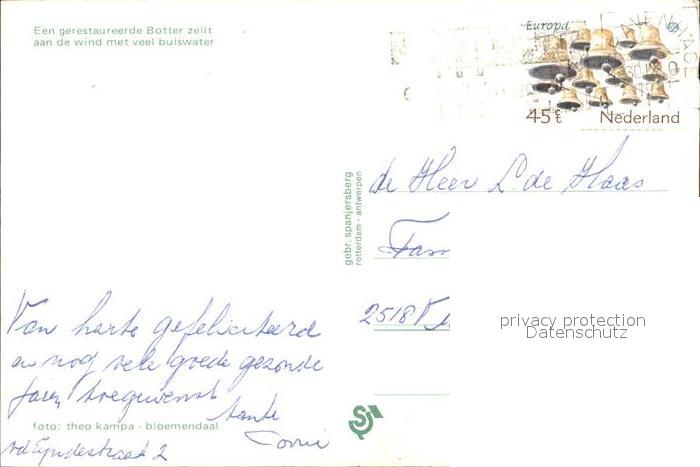 Een gerestaureerde Botter zeilt
aan de wind met veel buiswater
Europa
45 c
Nederland
gebr. spanjersberg
rotterdam - antwerpen
de Heer L. de Haas
Fam
2518 V
privacy protection
Datenschutz
Van harte gefeliciteerd
en nog vele goede gezonde
jaren toegewenst
tante
Corrie
foto: theo kampa - bloemendaal
v d Eyndestraat 2